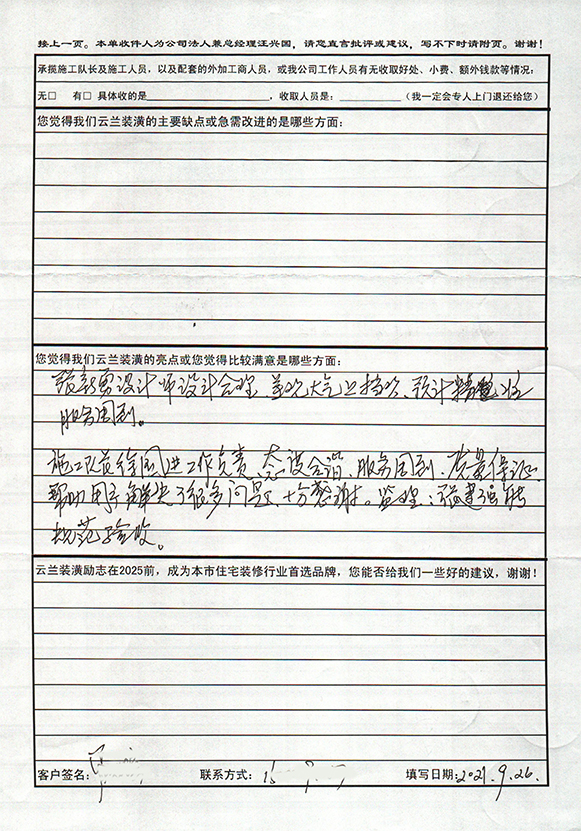 接上一页。本单收件人为公司法人兼总经理汪兴国，请您直言批评或建议，写不下时请附页。谢谢！
承揽施工队长及施工人员，以及配套的外加工商人员，或我公司工作人员有无收取好处、小费、额外钱款等情况：
无□ 有□ 具体收的是____，收取人员是：____（我一定会专人上门退还给您）
您觉得我们云兰装潢的主要缺点或急需改进的是哪些方面：
您觉得我们云兰装潢的亮点或您觉得比较满意是哪些方面：
张新勇设计师设计合理、美观大气上档次、预计
服务周到。
施工队长徐国进工作负责、态度合谐、服务周到、质量保证
帮助用户解决了很多问题、十分感谢。监理：张建强能
规范验收。
云兰装潢励志在2025前，成为本市住宅装修行业首选品牌，您能否给我们一些好的建议，谢谢！
客户签名： 联系方式： 填写日期：2021.9.26.